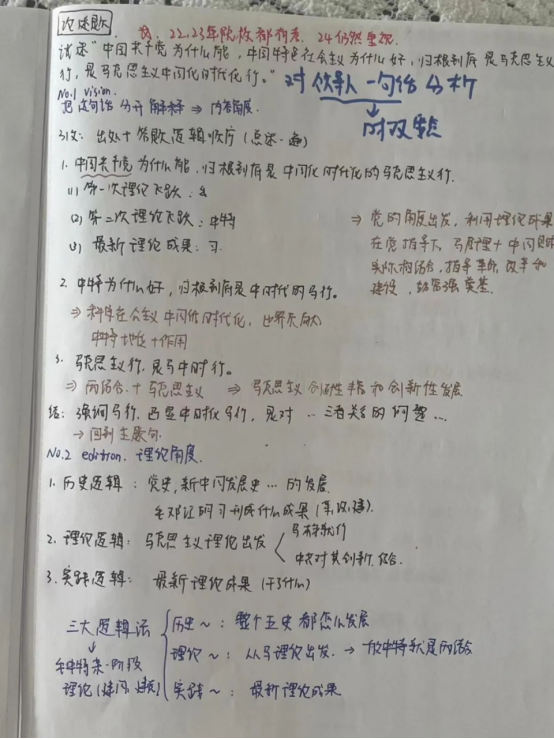 论述题
22,23年院校都有考. 24仍然重视.
试述“中国共产党为什么能，中国特色社会主义为什么好，归根到底是马克思主义
行，是马克思主义中国化时代化行。”
对领导人一句话分析
No.1 vision.
把这句话分开解释 ⇒ 内容角度.
引: 出处+答题逻辑顺序 (总述一遍)
1. 中国共产党为什么能，归根到底是中国化时代化的马克思主义行.
(1) 第一次理论飞跃: 毛
(2) 第二次理论飞跃: 中特
(3) 最新理论成果: 习.
⇒ 党的角度出发，利用理论成果
在党指导下，马原理+中国具体
实际相结合，指导革命、改革和
建设，
2. 中特为什么好，归根到底是中时代的马行。
⇒ 科学社会主义中国化时代化，世界大
中特地位+作用
3. 马克思主义行，是马中时行。
⇒ 两结合+马克思主义 ⇒ 马克思主义创新性发展
结: 强调马行，凸显中时化马行，是对…三者关系的回答…
→ 回到主题句.
No.2 edition. 理论角度.
1. 历史逻辑: 党史，新中国发展史…的发展
毛邓江胡习形成什么成果 (革,改,建).
2. 理论逻辑: 马克思主义理论出发
中共对其创新.结合.
3. 实践逻辑: 最新理论成果 (干了什么)
三大逻辑法
历史~: 整个五史都怎么发展
理论~: 从马理论出发. → 两结合
某一阶段
理论
实践~: 最新理论成果